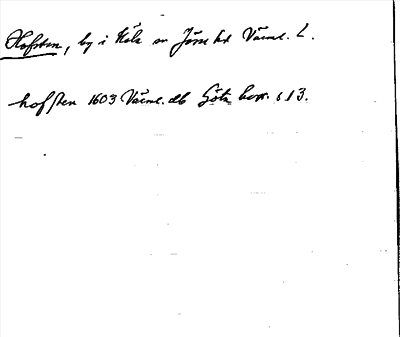 Hofsten, by i Köla sn Jösse hd Värml. L.
hofsten 1603 Värml. db Göta hovr. s 13.